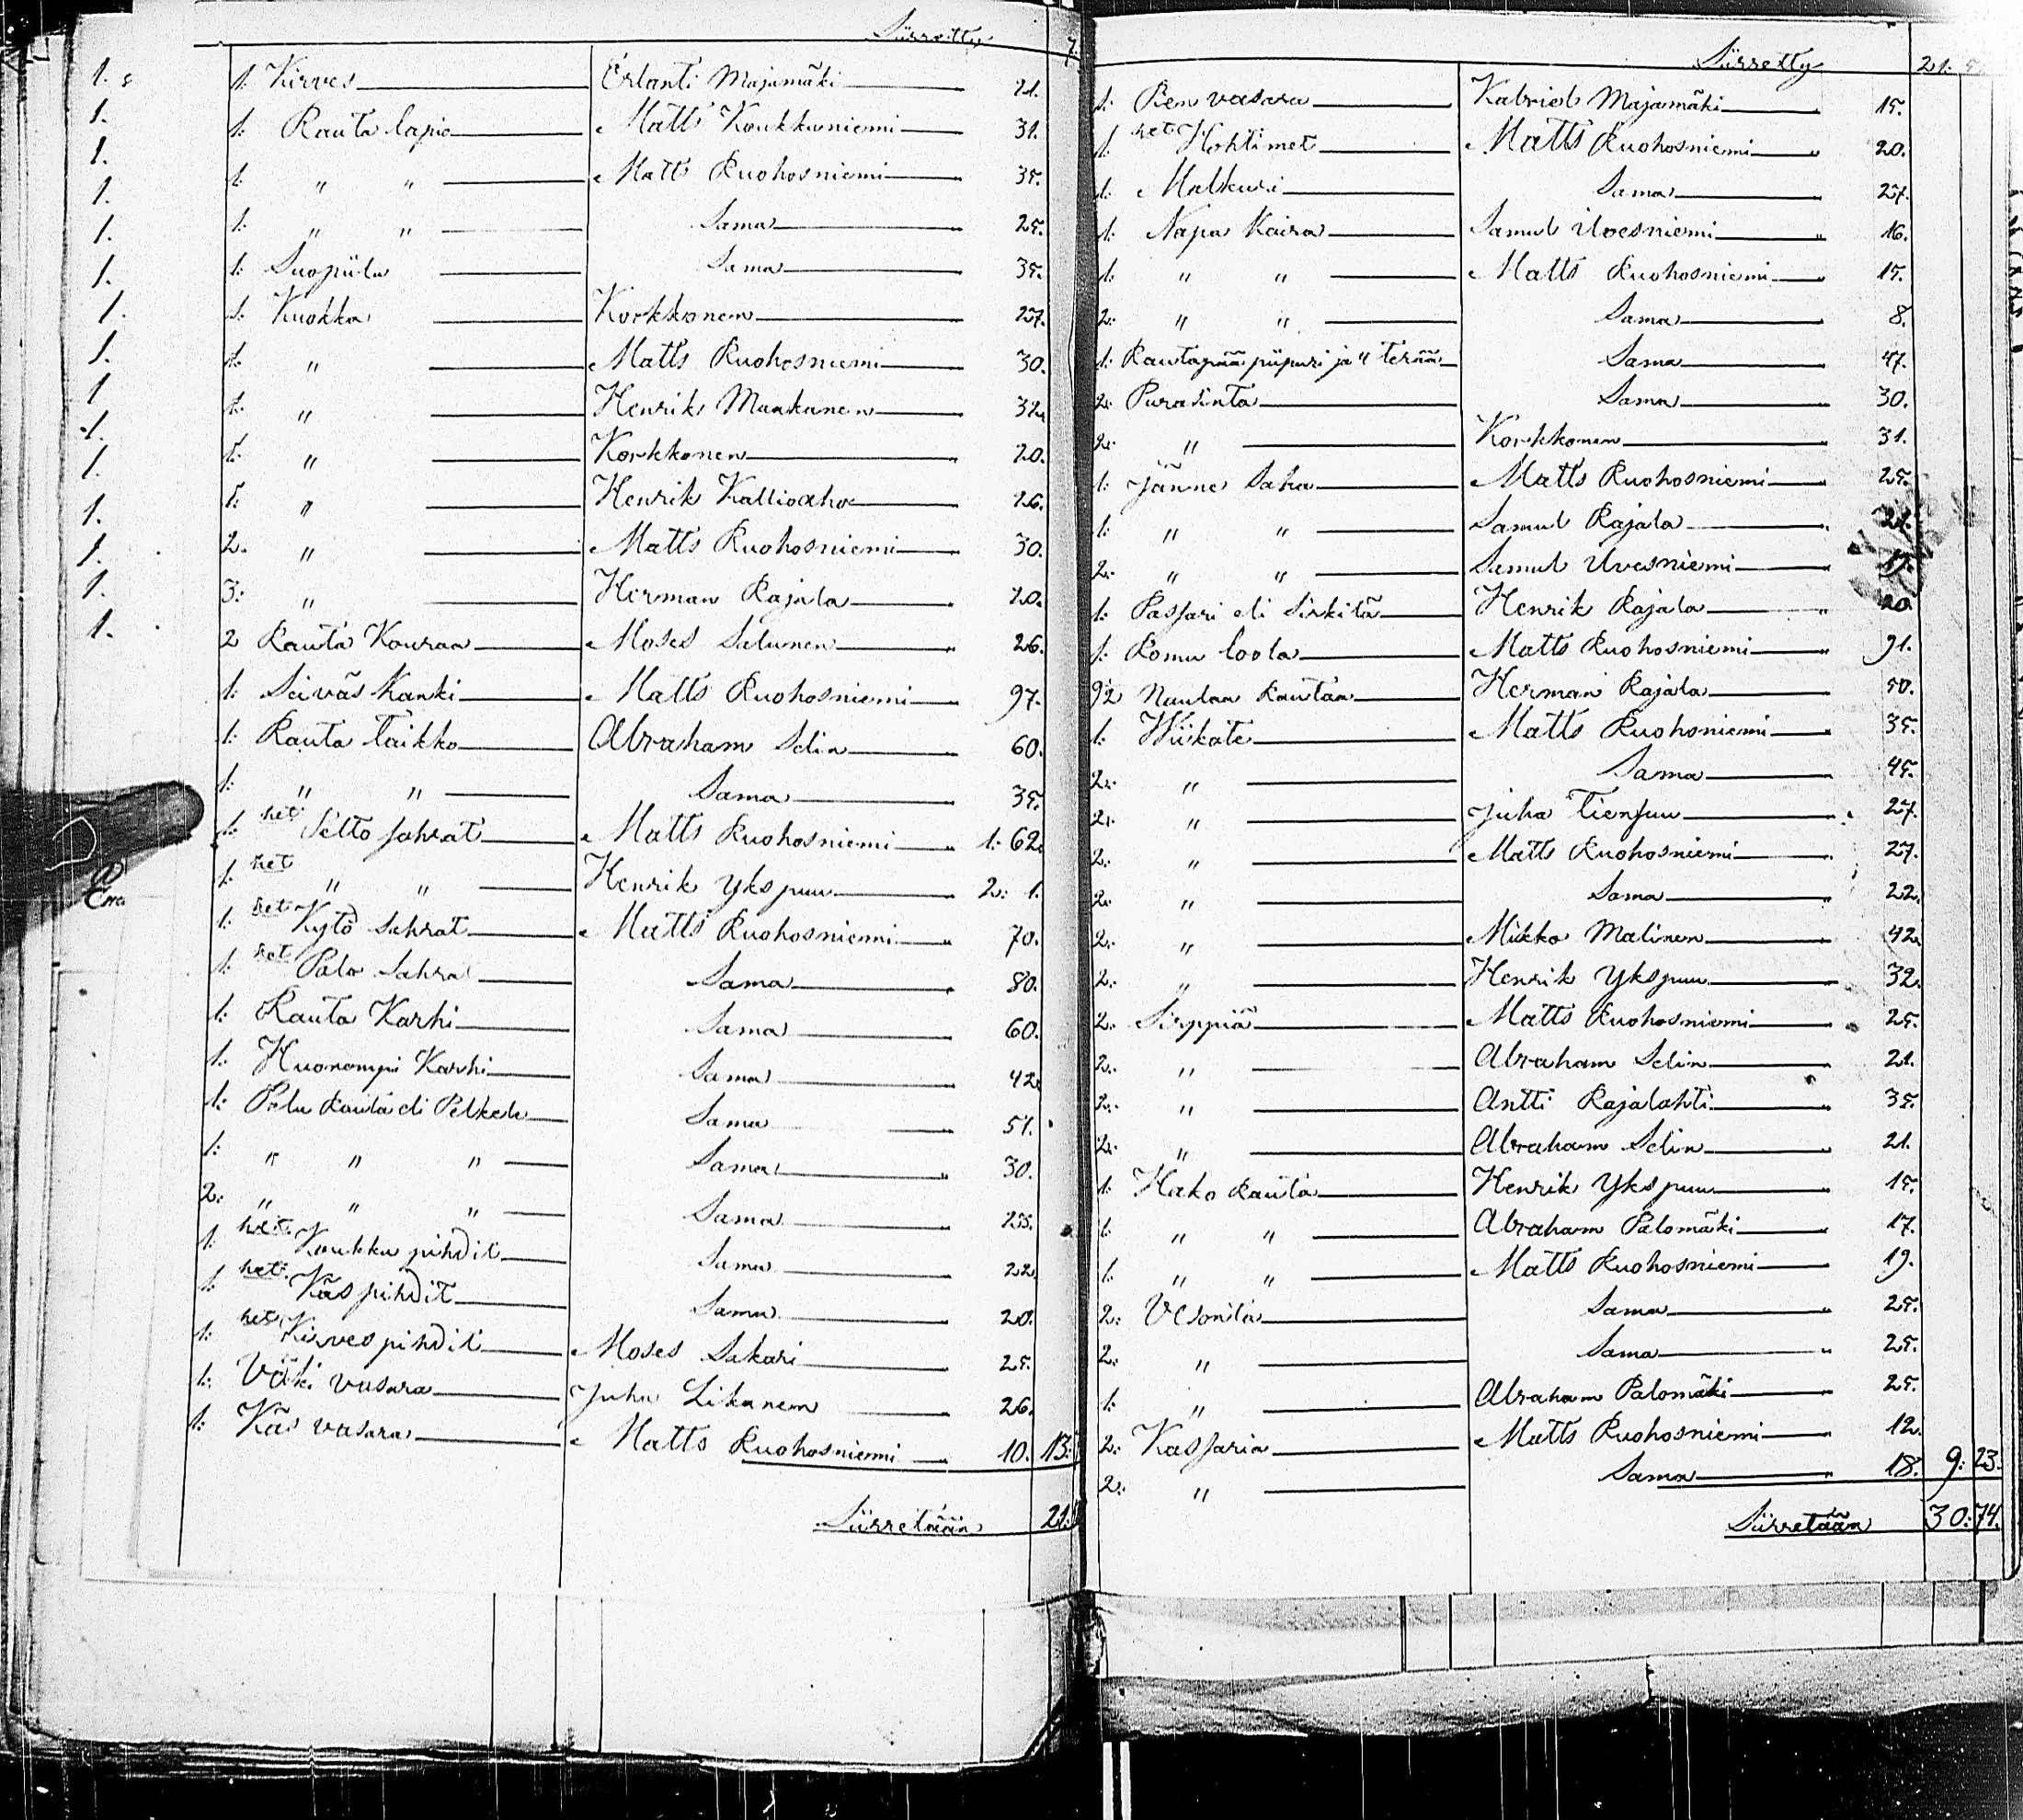 Siirretty 7.
1. Kirves Erlanti Majamäki 21.
1. Rauta lapio Matts Koukkuniemi 31.
1. " " Matts Ruohosniemi 35.
1. " " Sama 25.
1. Suopiilu Sama 35.
1. Kuokka Korkkonen 27.
1. " Matts Ruohosniemi 30.
1. " Henrik Maukanen 32.
1. " Korkkonen 20.
1. " Henrik Kallioaho 26.
2. " Matts Ruohosniemi 30.
3. " Herman Rajala 20.
2 Rauta Kouraa Moses Salunen 26.
1. Seiväs Kanki Matts Ruohosniemi 97.
1. Rauta taikko Abraham Selin 60.
1. " " Sama 35.
1. het Selto sahrat Matts Ruohosniemi 1: 62.
1. het " " Henrik Ykspuu 2: 1.
1. het Kytö sahrat Matts Ruohosniemi 70.
1. het Palo sahra Sama 80.
1. Rauta Karhi Sama 60.
1. Huonompi Karhi Sama 42
1. Palu Rauta eli Pelkele Sama 51.
1. " " " Sama 30.
2. " " " Sama 25.
1. het Koukku pihdit Sama 22
1. het Käs pihdit Sama 20.
1. het Kirves pihdit Moses Sakari 25.
1. Väki vasara Juha Likanen 26.
1. Käs vasara Matts Ruohosniemi 10. 13.
Siirretään 21.
Siirretty 21.
1. Pien vasara Kabriel Majamäki 15.
1. het Hohtimet Matts Ruohosniemi 20.
1. Malkuri Sama 27.
1. Napa Kaira Samul Ilvesniemi 16.
1. " " Matts Ruohosniemi 15.
2. " " Sama 8.
1. Rautapää piipuri ja 4 terää Sama 47.
2. Purasinta Sama 30.
2. " Korkkonen 31.
1. Jänne Saha Matts Ruohosniemi 25.
1. " " Samul Rajala 21.
2. " " Samul Ilvesniemi 17.
1. Passari eli Sirkilä Henrik Rajala 20
1. Romu loola Matts Ruohosniemi 91.
92 Naulan Rautaa Herman Rajala 50.
1. Wiikate Matts Ruohosniemi 35.
2. " Sama 45.
2. " Juha Tiensuu 27.
2. " Matts Ruohosniemi 27.
2. " Sama 22.
2. " Mikko Malinen 42.
2. " Henrik Ykspuu 32.
2. Sirppiä Matts Ruohosniemi 25.
2. " Abraham Selin 21.
2. " Antti Rajalahti 35.
2. " Abraham Selin 21.
1. Hako Rauta Henrik Ykspuu 15.
1. " " Abraham Palomäki 17.
1. " " Matts Ruohosniemi 19.
2. Vesonita Sama 25.
2. " Sama 25.
1. " Abraham Palomäki 25.
2. Kassaria Matts Ruohosniemi 12.
2. " Sama 18. 9: 23.
Siirretään 30: 74.